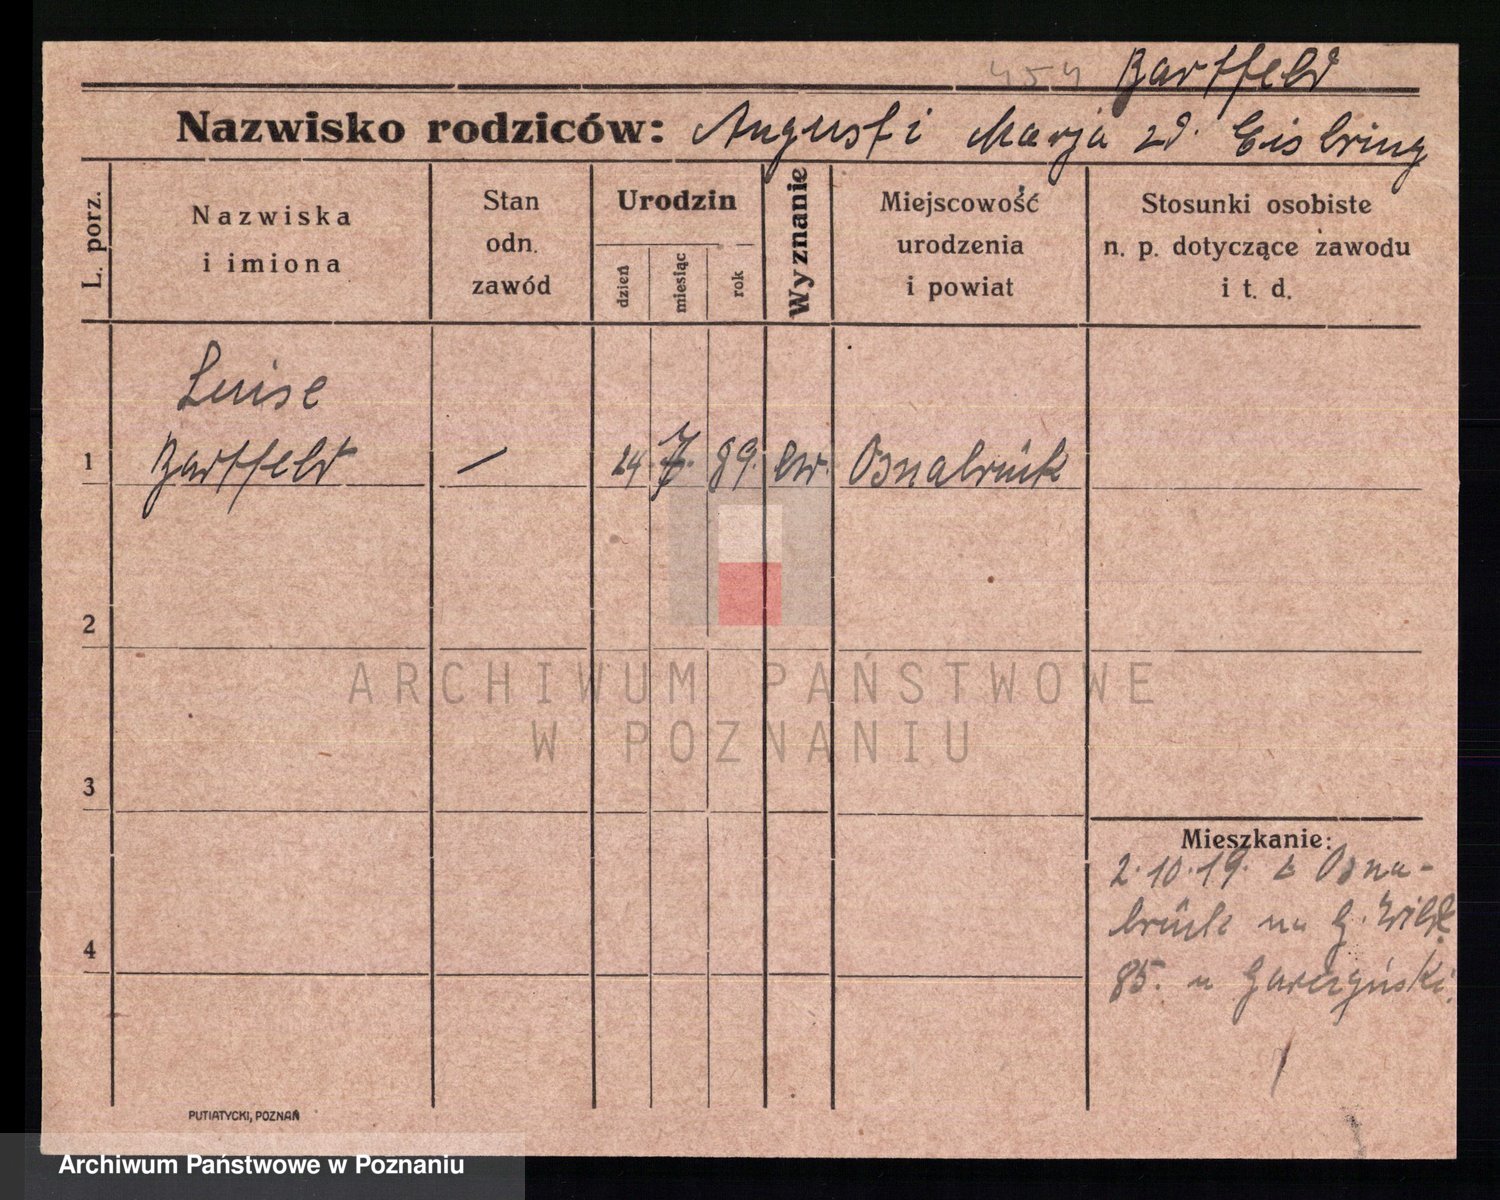 454 Bartfeld
Nazwisko rodziców: August i Marja zd. Eisbring
L. porz.
Nazwiska
i imiona
Stan
odn.
zawód
Urodzin
dzień
miesiąc
rok
Wyznanie
Miejscowość
urodzenia
i powiat
Stosunki osobiste
n. p. dotyczące zawodu
i t. d.
Luise
1 Bartfeld — 24. 7. 89. ew. Osnabrück
2
3
4
Mieszkanie:
2.10.19. z Osna-
brück na G. Wild.
85. u Garczyński.
ARCHIWUM PAŃSTWOWE
W POZNANIU
PUTIATYCKI, POZNAŃ
Archiwum Państwowe w Poznaniu